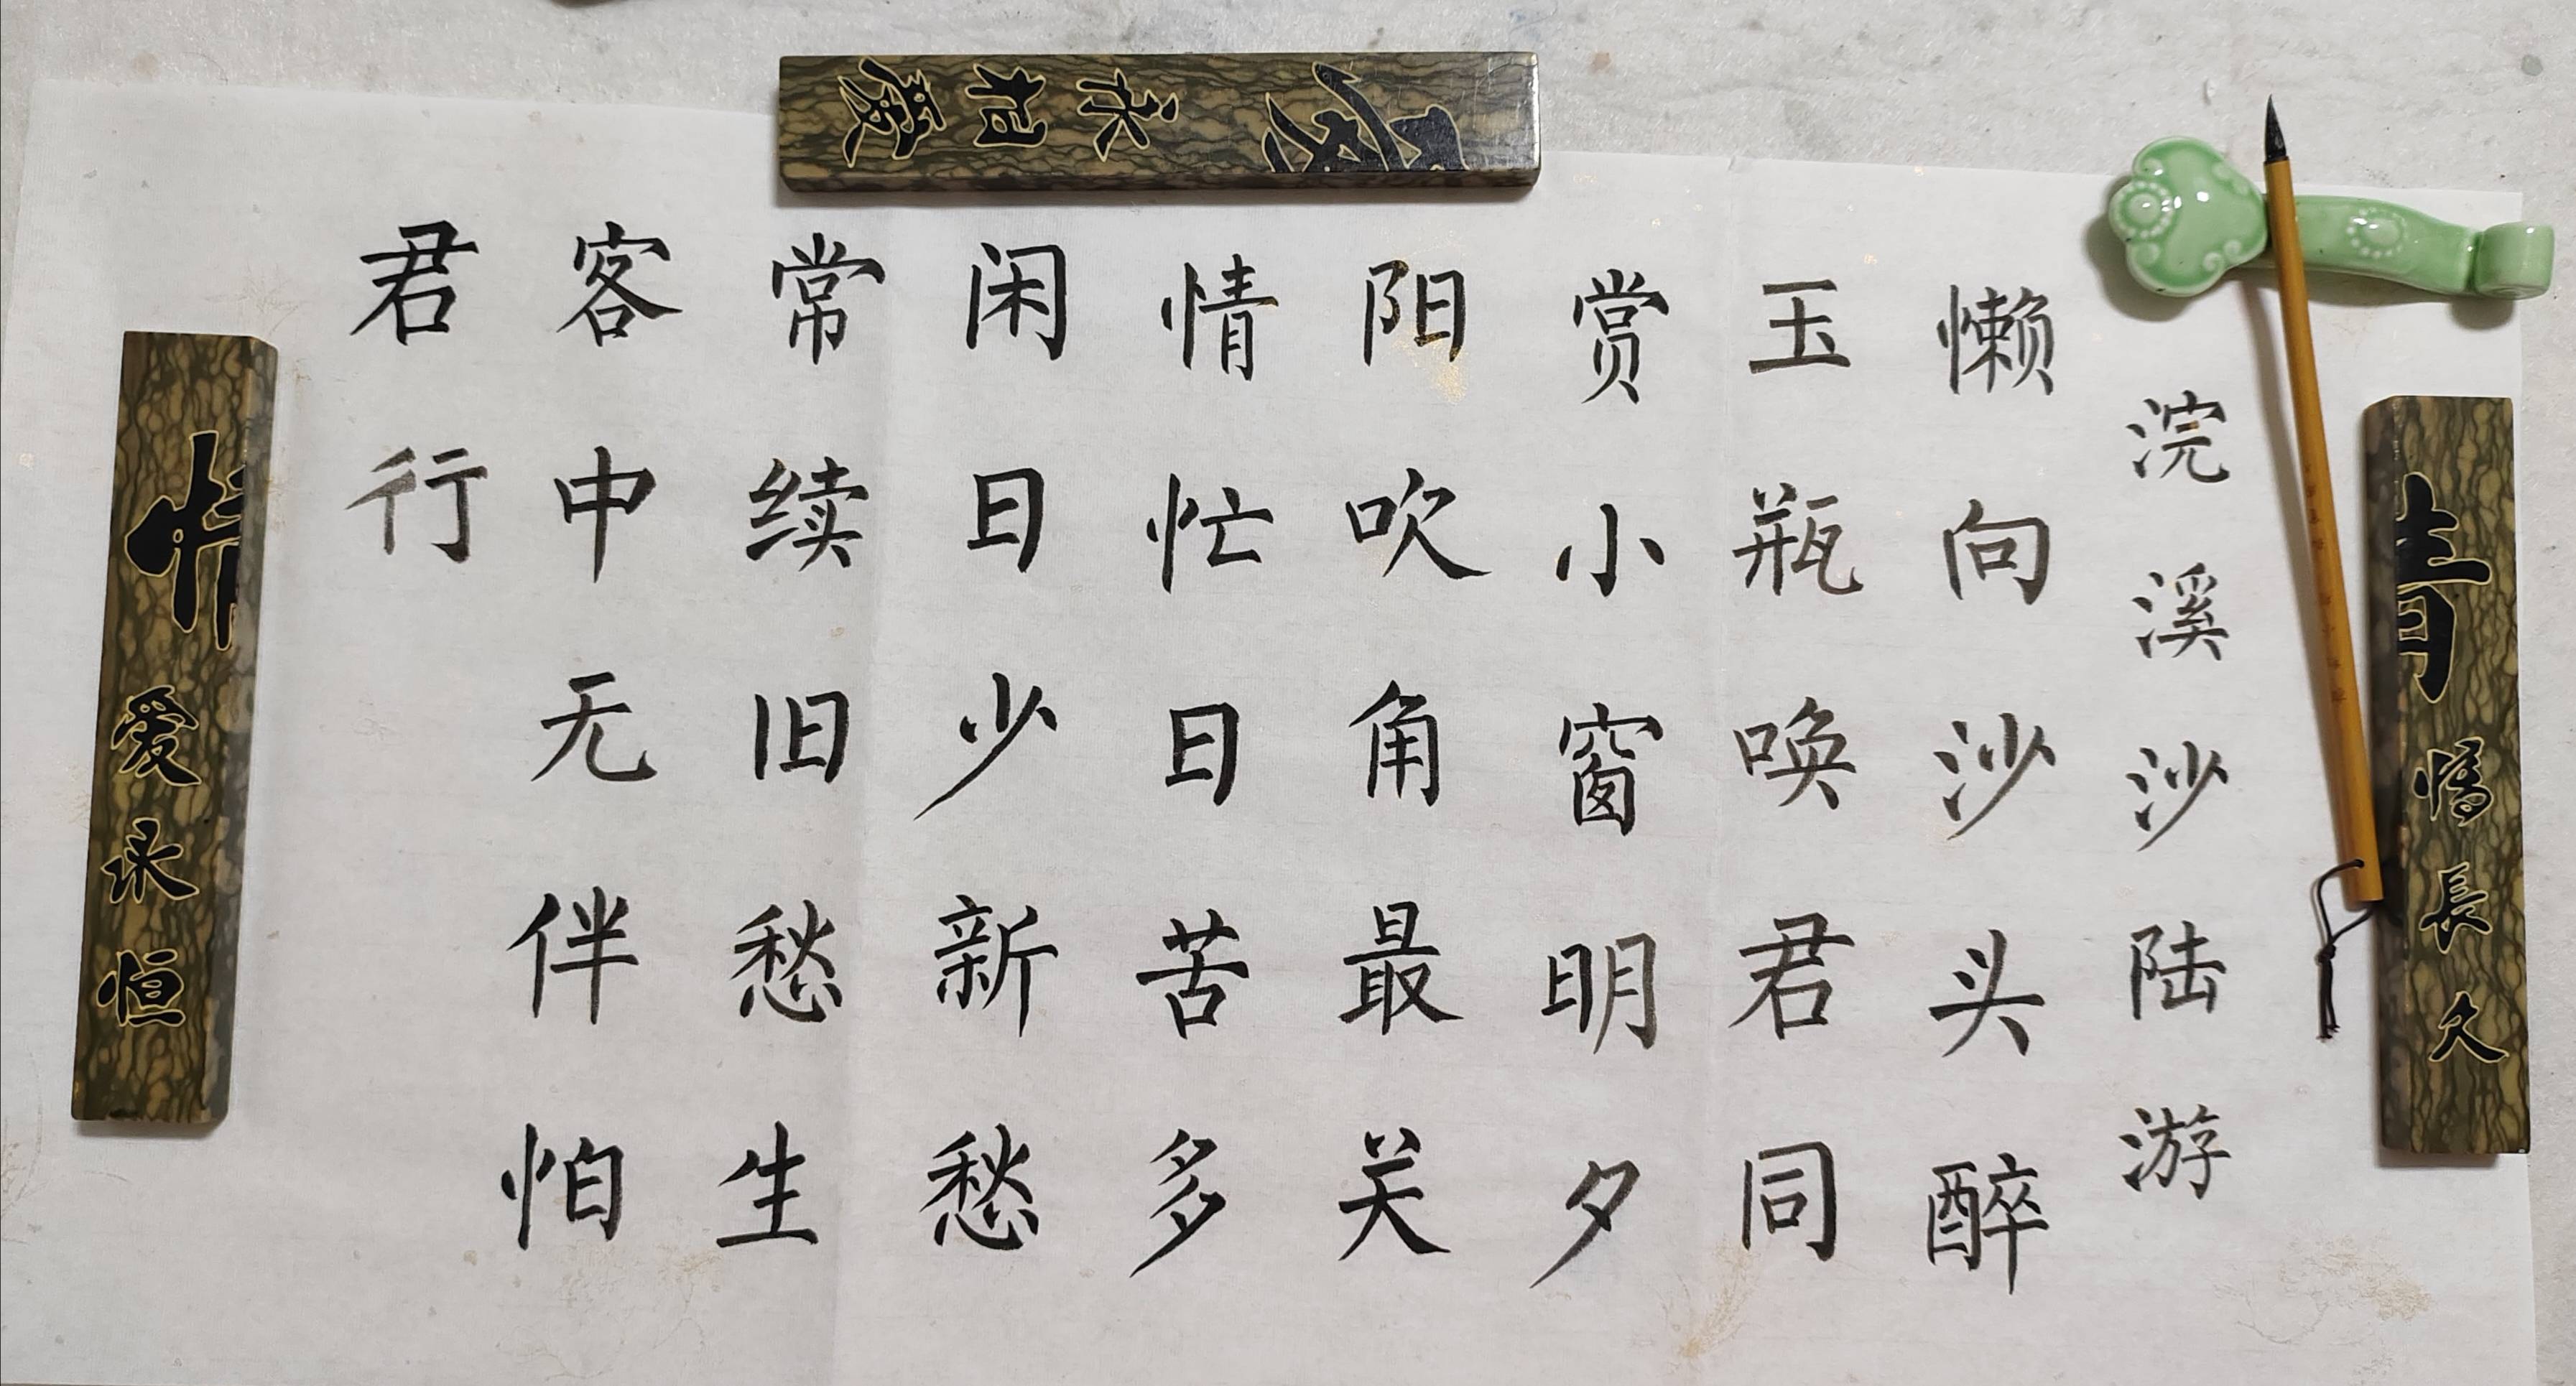 浣溪沙陆游
懒向沙头醉
玉瓶唤君同
赏小窗明夕
阳吹角最关
情忙日苦多
闲日少新愁
常续旧愁生
客中无伴怕
君行
永相愛
情長久
爱永恒